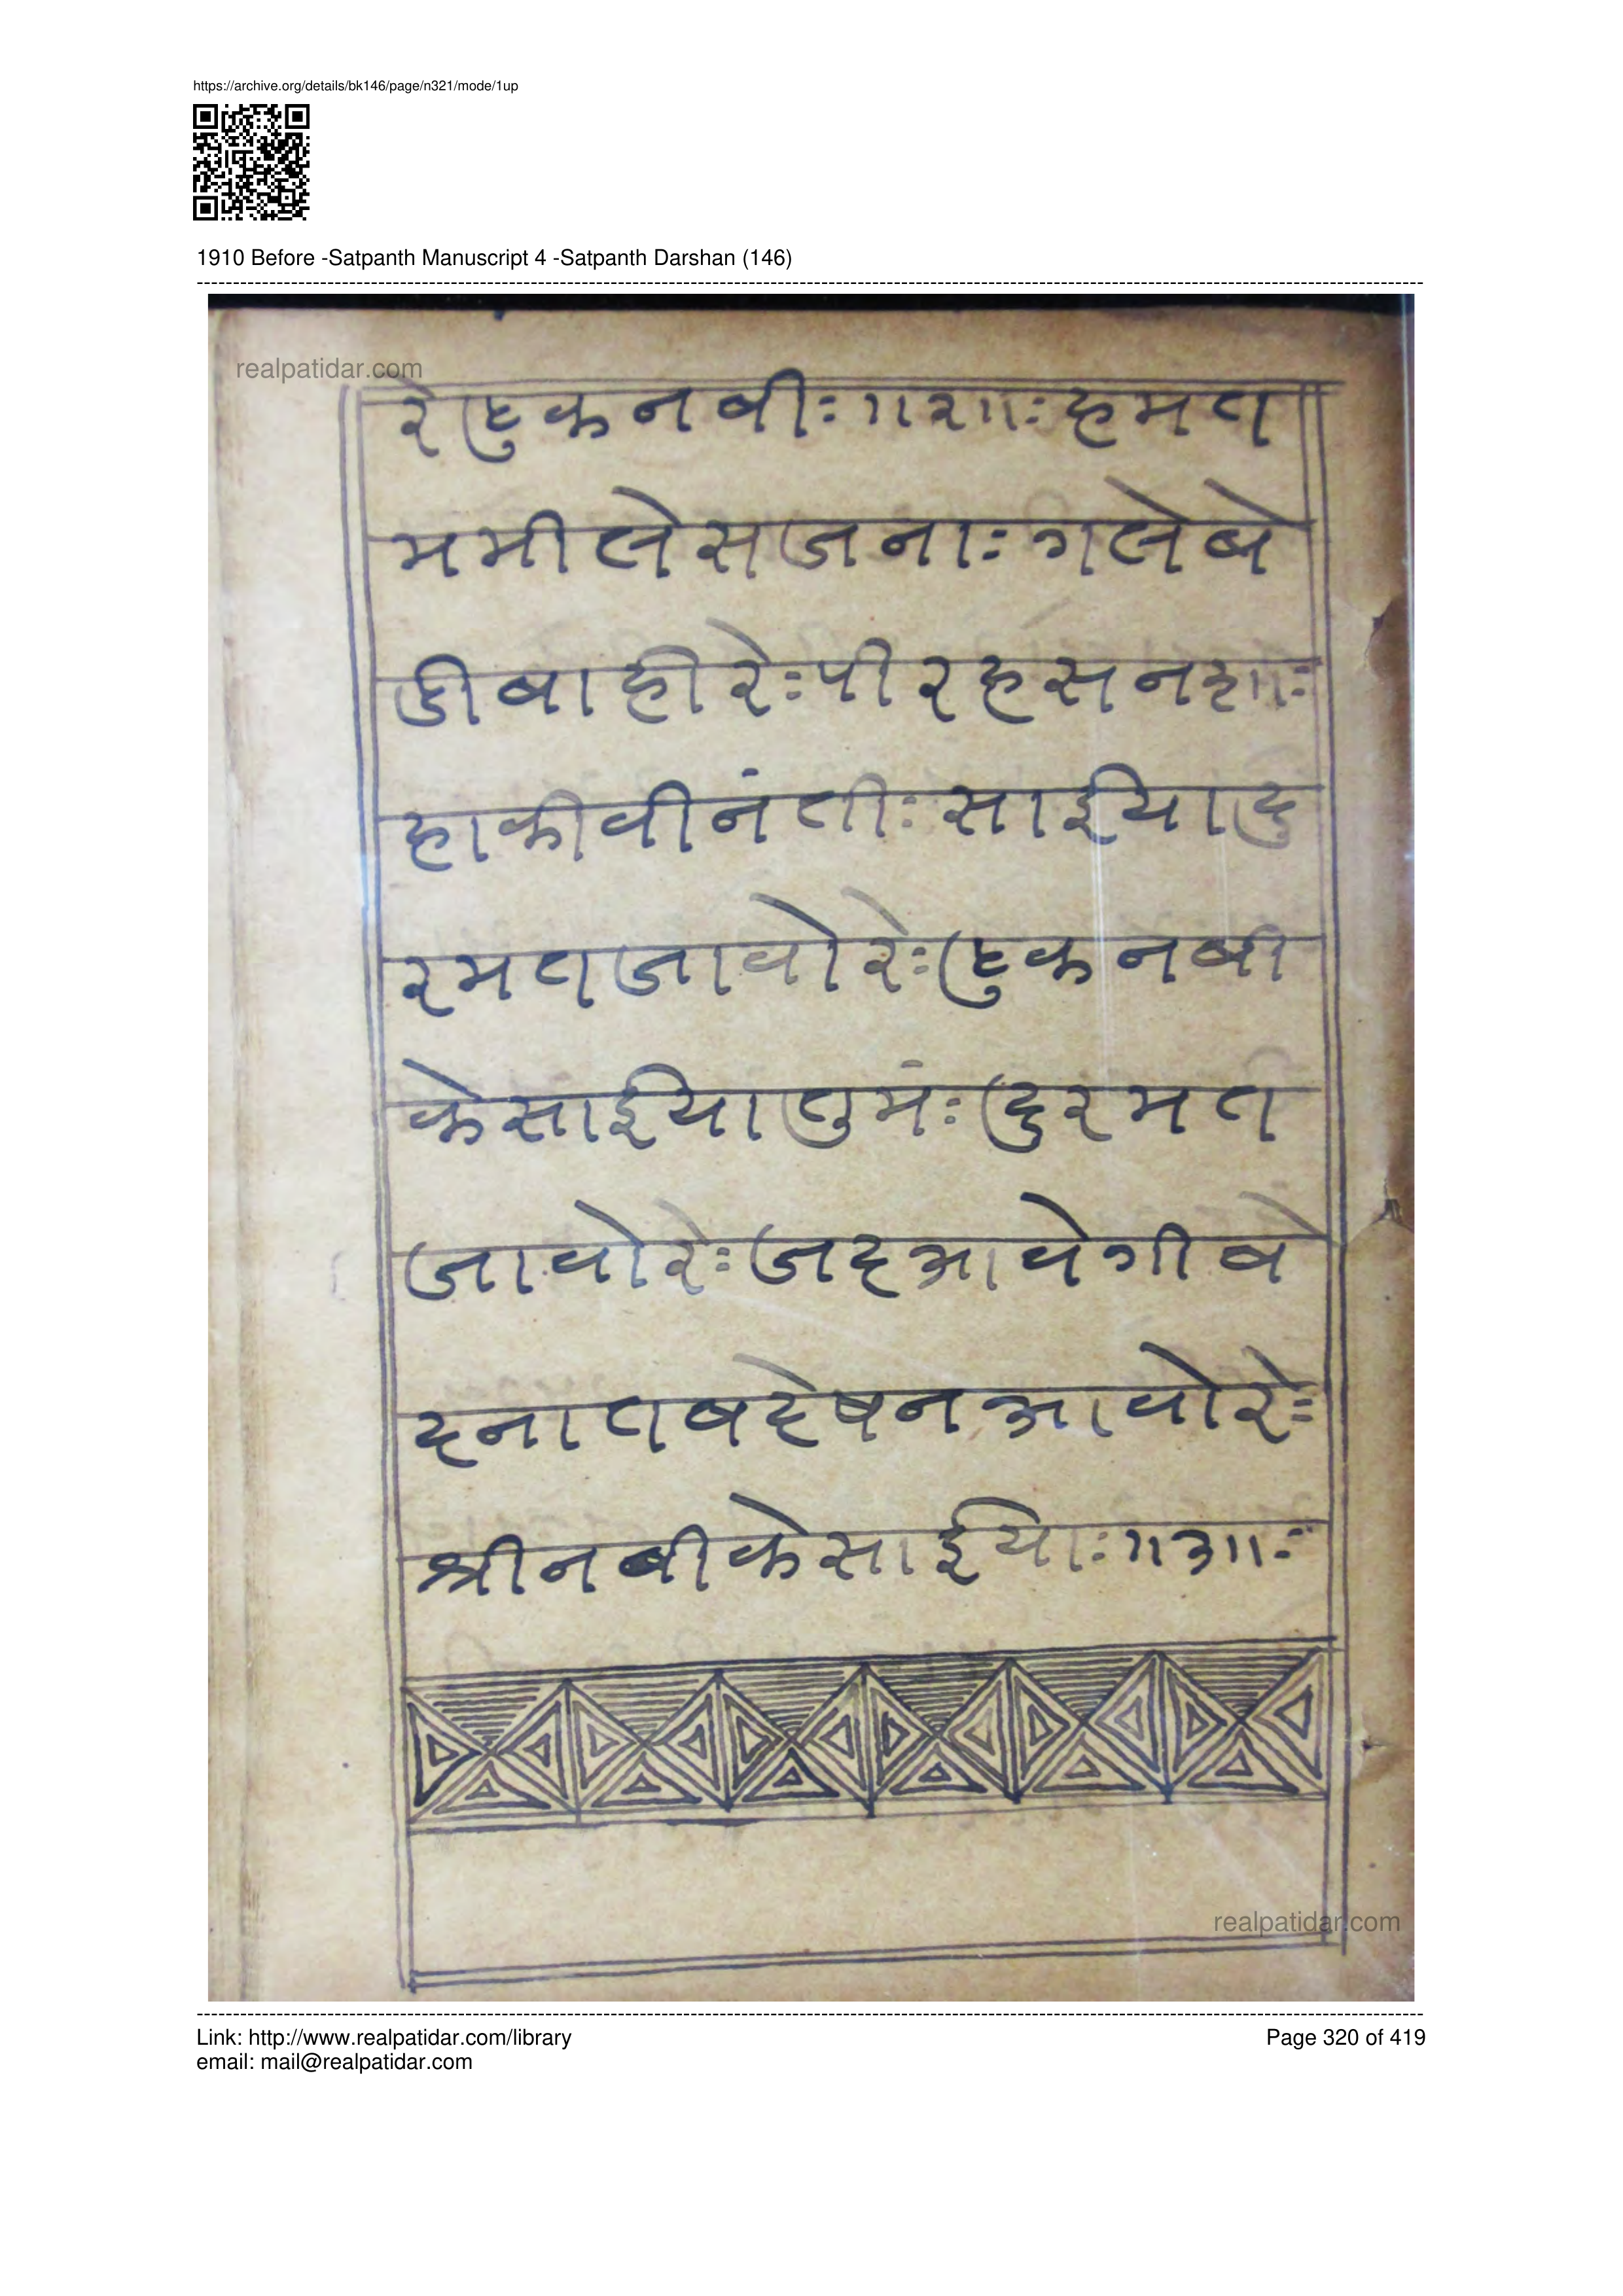 https://archive.org/details/bk146/page/n321/mode/1up
1910 Before -Satpanth Manuscript 4 -Satpanth Darshan (146)
realpatidar.com
रेहुकनबीः॥२॥ःहमत
ममीलेसजनाः गलेबे
डीबाहीरेःपीरहसनशाः
हाकीवीनंतीः साईयादु
रमतजावोरेःहुकनबी
केसाईयातुमंः दुरमत
जावोरेः जदआवेगीव
दनातबदेषनआवोरेः
श्रीनबीकेसाईयाः॥३॥ः
realpatidar.com
Link: http://www.realpatidar.com/library
Page 320 of 419
email: mail@realpatidar.com